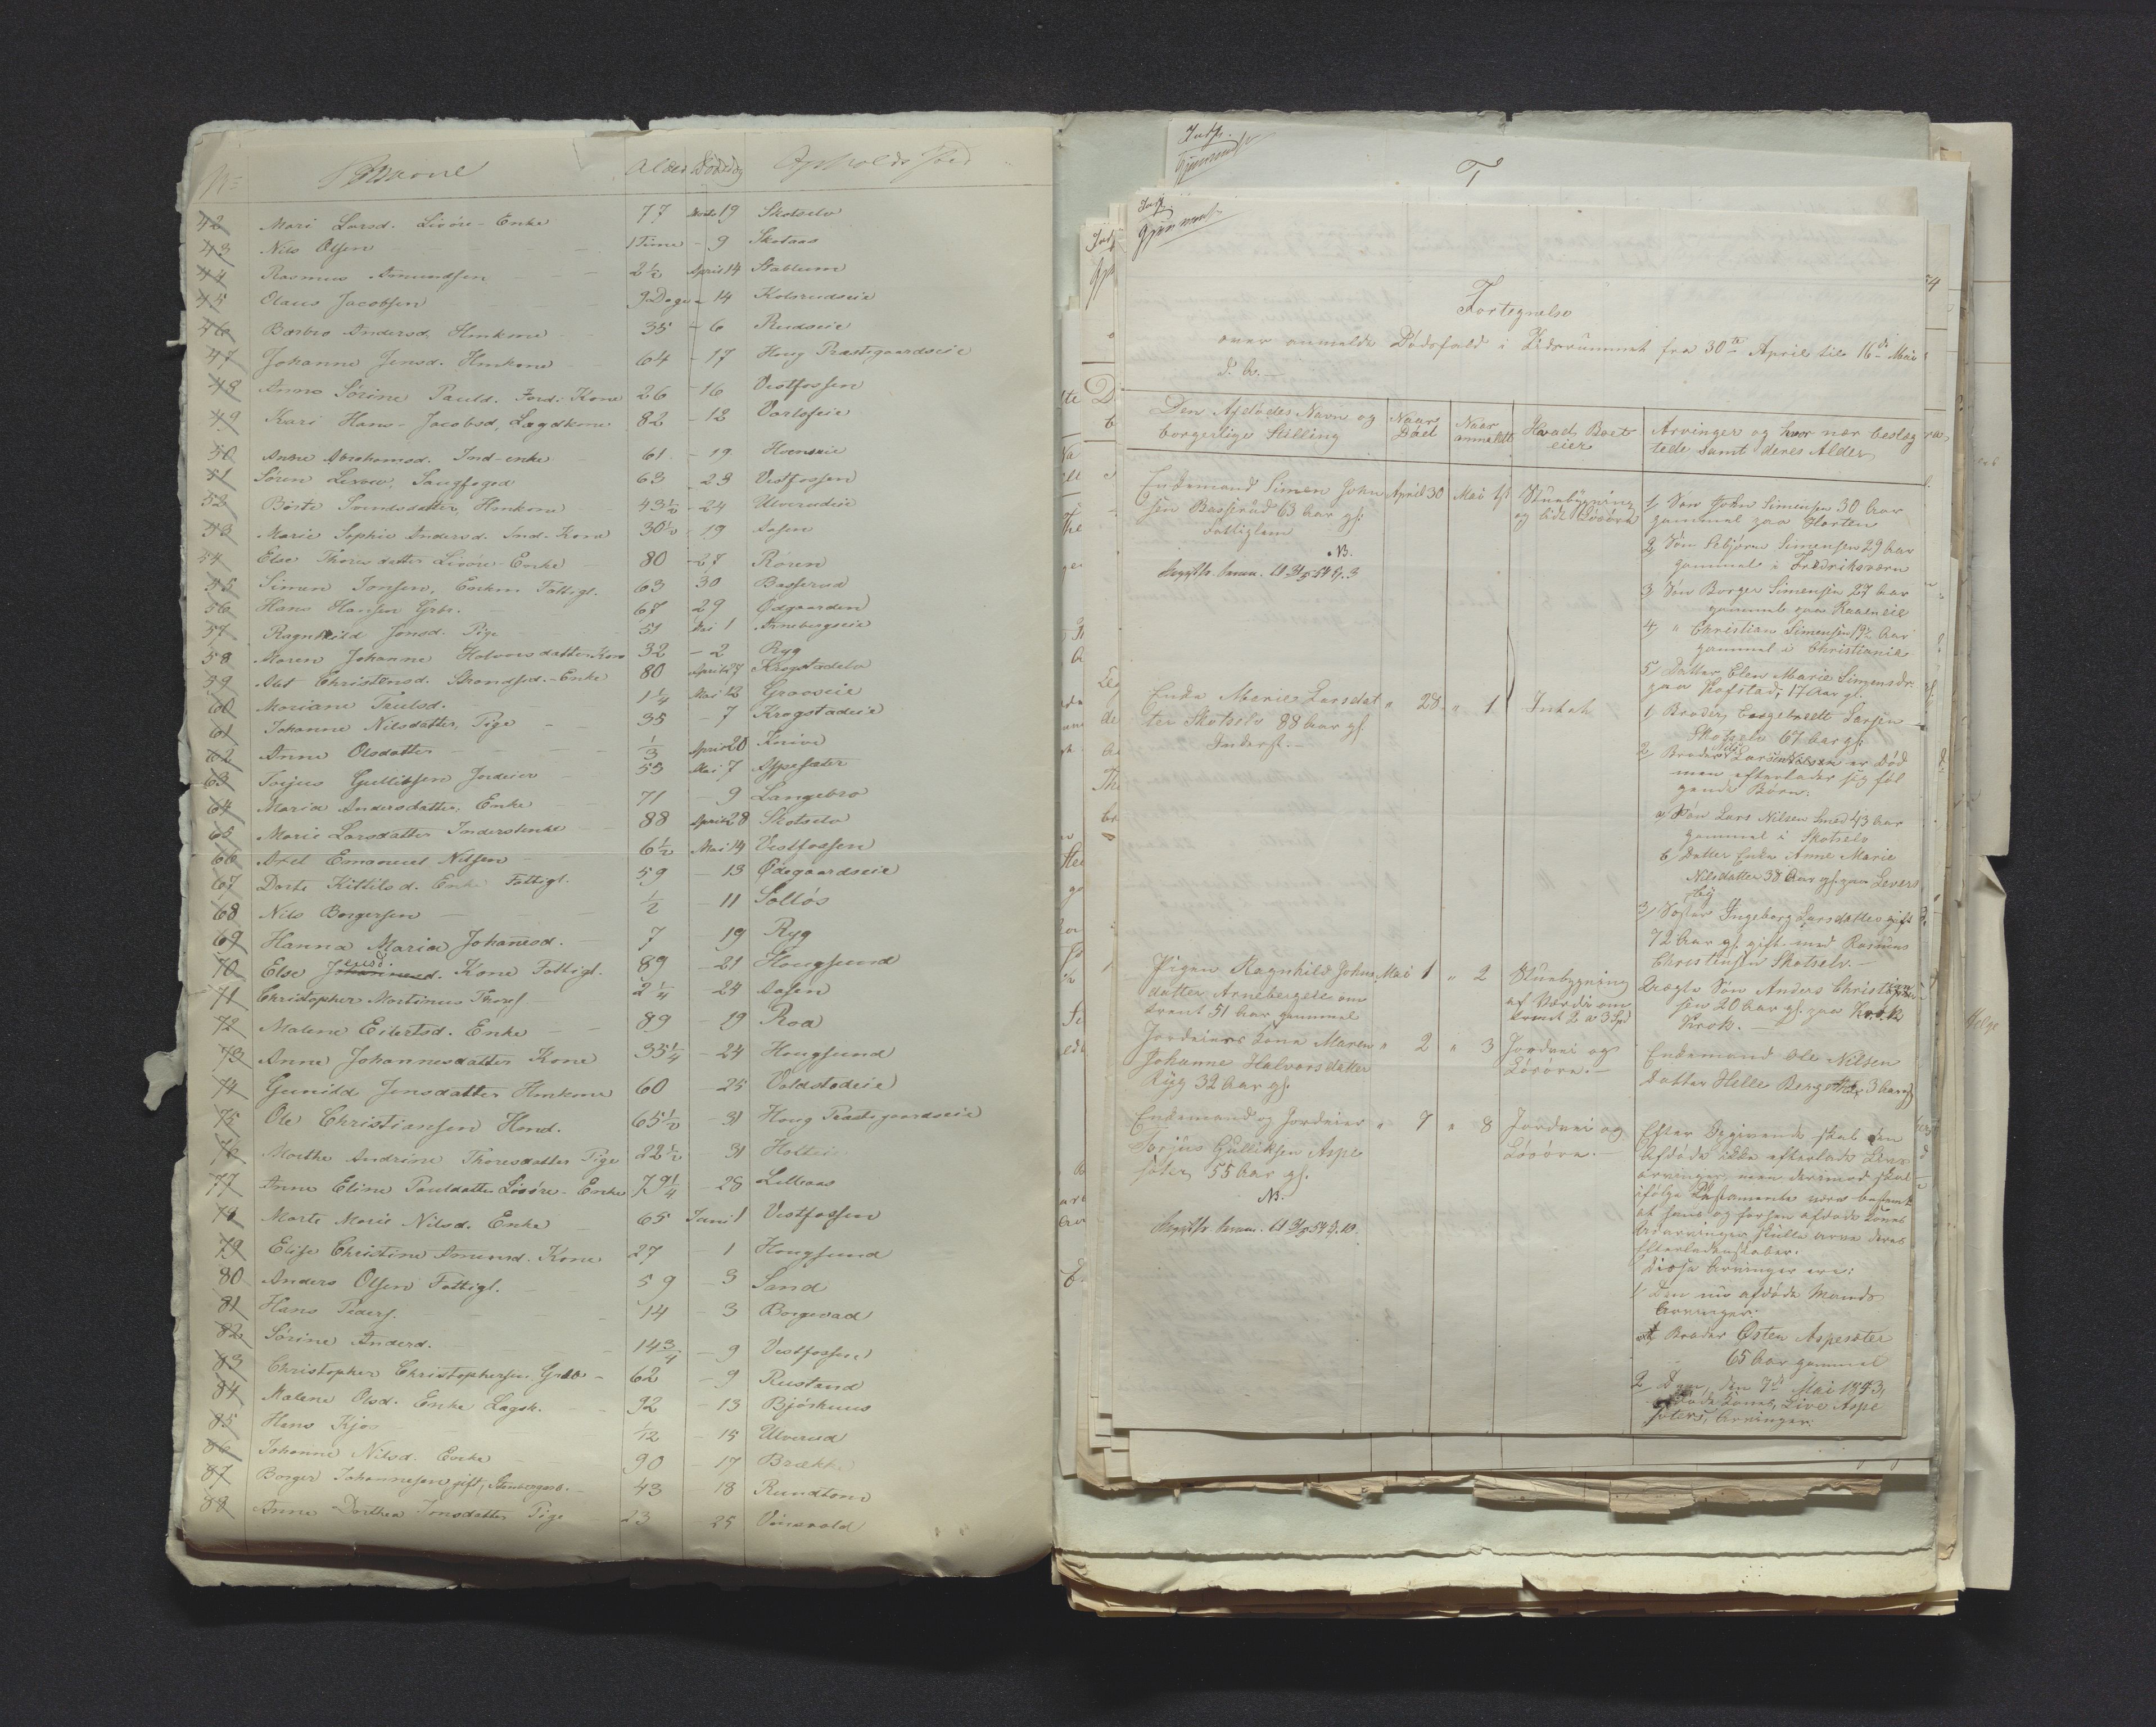 No Navne Alder Dødsdag Opholds Sted
42 Mari Larsd. Livöre-Enke 77 Marts 19 Skotselv
43 Nils Olsen 1 Time - 9 Skotaas
44 Rasmus Amundsen 2½ April 14 Stablum
45 Olaus Jacobsen 9 Dage - 14 Kolsrudeie
46 Barbro Andersd. Hmkone 35 - 6 Rudseie
47 Johanne Jensd. Hmkone 64 - 17 Houg Præstegaardseie
48 Anne Sörine Pauls. Jord. Kone 26 - 16 Vestfossen
49 Kari Hans-Jacobsd. Lægdkone 82 - 12
50 Anne Abrahamsd. Ind-enke 61 - 19
51 Sören Saugfoged 63 - 23 Vestfossen
52 Börte Hmkone 43½ - 24 Ulverudeie
53 Marie Sophie Andersd. Ind. Kone 30½ - 19 Aasen
54 Else Thoresdatter Livöre-Enke 80 - 27 Roren
55 Simen Jonsen, Enkem. Fattigl. 63 30 Basserud
56 Hans Hansen Grbr. 67 29 Ödgaarden
57 Ragnhild Jonsd. Pige 51 Mai 1 Arnebergseie
58 Maren Johanne Halvorsdatter Kone 32 - 2 Ryg
59 Alet Christensd. Strandsid.-Enke 80 April 27 Krogstadelv
60 Mariane Trulsd. 1¼ Mai 13 Grooseie
61 Johanne Nilsdatter, Pige 35 - 7 Krogstadeie
62 Anne Olsdatter ⅓ April 20 Knive
63 Torjus Gulliksen Jordeier 55 Mai 7 Aspesæter
64 Maria Andersdatter, Enke 71 - 9 Langebro
65 Marie Larsdatter Inderstenke 88 April 28 Skotselv
66 Axel Emanuel Nilsen 6½ Mai 14 Vestfossen
67 Dorte Kittilsd. Enke Fattigl. 59 - 13 Ödegaardseie
68 Nils Borgersen ½ - 11 Solløs
69 Hanna Maria Johannesd. 7 - 19 Ryg
70 Else Kone Fattigl. 89 - 21 Hougsund
71 Christopher Martinus Thoresf. 2¼ - 24 Aasen
72 Malene Eilertsd. Enke 89 - 19 Roa
73 Anne Johannesdatter Kone 35¼ - 24 Hougsund
74 Gunild Jensdatter Hmkone 60 - 25 Voldstadeie
75 Ole Christiansen Hmd. 65½ - 31 Houg Præstegaardseie
76 Marthe Andrine Thoresdatter Pige 22½ - 31
77 Anne Eline Pauldatter Livöre-Enke 79¼ - 28 Lilleaas
78 Marte Marie Nilsd. Enke 65 Juni 1 Vestfossen
79 Elise Christine Amunsd. Kone 27 1 Hougsund
80 Anders Olsen Fattigl. 59 - 3 Sand
81 Hans Peders. 14 - 3 Borgevad
82 Sörine Andersd. 14¾ - 9 Vestfossen
83 Christopher Christophersen Grbr - 62 - 9 Rustand
84 Malene Olsd. Enke Lægsk. 92 - 13 Bjørkuus
85 Hans Kjos 1/12 - 15 Ulverud
86 Johanne Nilsd. Enke 90 - 17 Brække
87 Borger Johannesen, gift, 43 - 18 Rundtom
88 Anne Dorthea Jonsdatter Pige 23 - 25 Vinsvold
Fortegnelse
over anmeldte Dødsfald i Tidsrummet fra 30te April til 16de Mai
d. A. —
Den Afdødes Navn og borgerlige Stilling
Naar Død
Naar anmeldt
Hvad Boet eier
Arvinger og hvor nær beslægtede samt deres Alder
Enkemand Simen John
sen Basserud 63 Aar gl.
Fattiglem
April 30 Mai 1st
Stuebygning
og lidt Løsøre
1, Søn John Simensen 30 Aar
gammel paa Horten
2, Søn Asbjørn Simensen 29 Aar
gammel i Fredriksværn
3, Søn Borger Simensen 27 Aar
gammel paa
4, " Christian Simensen 19½ Aar
gammel i Christiania
5, Datter, Elen Marie Simensdr.
paa Hofstad, 17 Aar gl.
NB.
Enke Marie Larsdat
ter Skotselv 88 Aar gl.
Inderst. —
" 28 " 1 Intet
1, Broder, Engebrett Larsen
Skotselv 67 Aar gl.
2, Broder Nils Larsen er død
men efterlader sig føl
gende Børn:
a, Søn Lars Nilsen Smed 43 Aar
gammel i Skotselv
b, Datter Enke Anne Marie
Nilsdatter 38 Aar gl. paa Levers
by
3, Søster Ingeborg Larsdatter gift
72 Aar gl. gift med Rasmus
Christensen Skotselv. —
Pigen Ragnhild Johns
datter Arnebergeie om
trent 51 Aar gammel
Mai 1 " 2
Stuebygning
af Værdi om
trent 2 a 3 Spd
Uægte Søn Anders Christian
sen 20 Aar gl. paa Krok
Krok. —
Jordeiers Kone Maren
Johanne Halvorsdatter
Ryg 32 Aar gl.
" 2 " 3
Jordvei og
Løsøre. —
Enkemand Ole Nilsen
Datter Helle Bergitte, 3 Aar gl.
Enkemand og Jordeier
Torjus Gulliksen Aspe
sæter, 55 Aar gl.
" 7 " 8
Jordvei og
Løsøre. —
NB.
Efter Opgivende skal den
Afdøde ikke efterlade Livs
arvinger, men derimod skal
ifølge Testamente være bestemt
at hans og forhen afdøde Kones
Udarvinger skulle arve deres
Efterladenskaber.
Disse Arvinger ere:
1, Den nu afdøde Mands
Arvinger:
Broder Østen Aspesæter
65 Aar gammel
2, Den, den 7de Mai 1853,
afdøde Kones, Live Aspe
sæters, Arvinger: